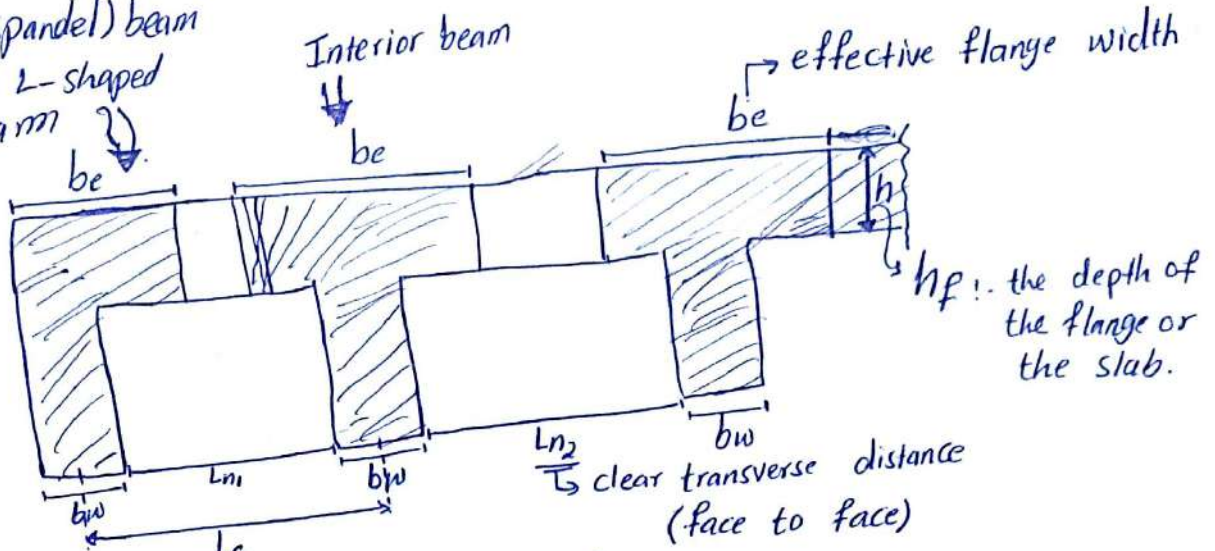 pandel) beam
L-shaped
am
Interior beam
effective flange width
be
be
be
h
hf :. the depth of
the flange or
the slab.
bw
Ln1
bw
Ln2
bw
clear transverse distance
(face to face)